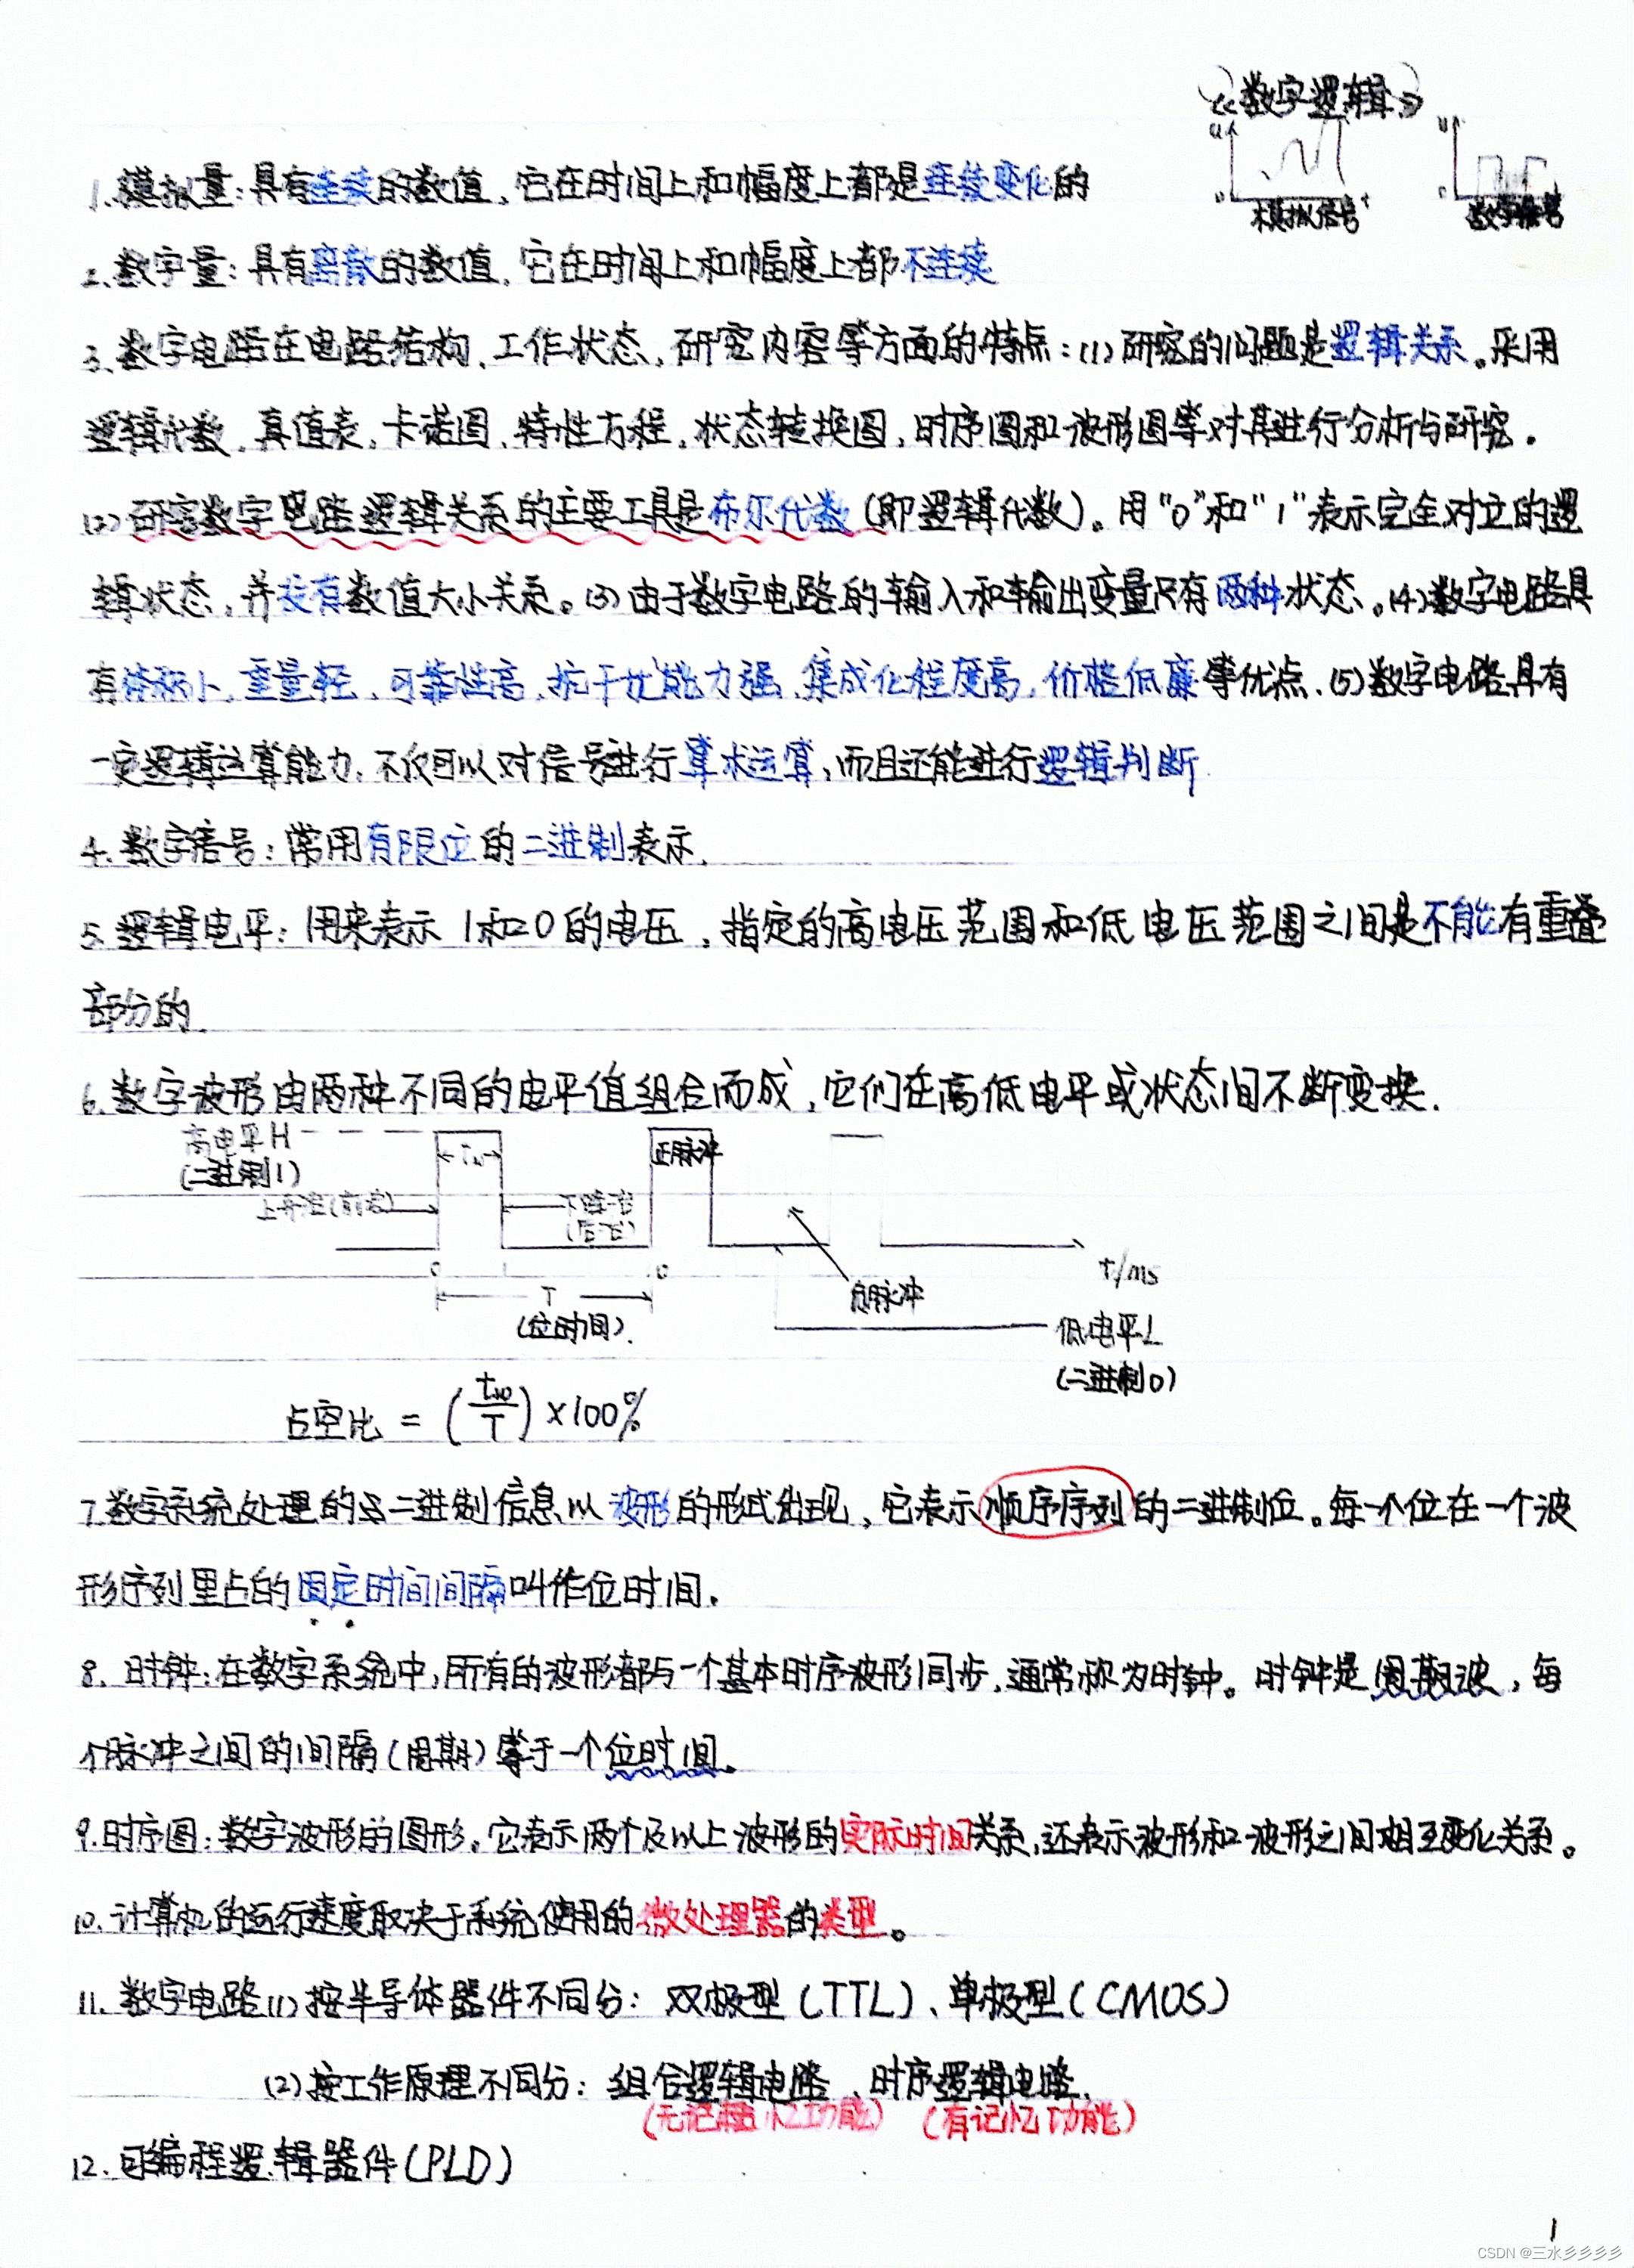 《数字逻辑》
u
u
0
t
0
模拟信号
数字信号
1.模拟量:具有连续的数值,它在时间上和幅度上都是连续变化的
2.数字量:具有离散的数值,它在时间上和幅度上都不连续
3.数字电路在电路结构、工作状态,研究内容等方面的特点:(1)研究的问题是逻辑关系。采用
逻辑代数,真值表,卡诺图,特性方程,状态转换图,时序图和波形图等对其进行分析与研究。
(2)研究数字电路逻辑关系的主要工具是布尔代数(即逻辑代数)。用“0”和“1”表示完全对立的逻
辑状态,并没有数值大小关系。(3)由于数字电路的输入和输出变量只有两种状态。(4)数字电路具
有体积小、重量轻、可靠性高、抗干扰能力强、集成化程度高,价格低廉等优点、(5)数字电路具有
一定逻辑运算能力,不仅可以对信号进行算术运算,而且还能进行逻辑判断
4.数字信号:常用有限位的二进制表示.
5.逻辑电平:用来表示1和0的电压,指定的高电压范围和低电压范围之间是不能有重叠
部分的.
6.数字波形由两种不同的电平值组合而成,它们在高低电平或状态间不断变换.
高电平H
(二进制1)
tw
正脉冲
上升沿(前沿)
下降沿
(后沿)
0
1
0
t/ms
T
(位时间).
负脉冲
低电平L
(二进制0)
占空比=(tw/T)×100%
7.数字系统处理的是二进制信息以波形的形式出现,它表示顺序序列的二进制位。每一个位在一个波
形序列里占的固定时间间隔叫作位时间.
8.时钟:在数字系统中,所有的波形都与一个基本时序波形同步,通常称为时钟。时钟是周期波,每
个脉冲之间的间隔(周期)等于一个位时间。
9.时序图:数字波形的图形。它表示两个及以上波形的实际时间关系,还表示波形和波形之间相互变化关系。
10.计算机的运行速度取决于系统使用的微处理器的类型。
11.数字电路(1)按半导体器件不同分:双极型(TTL)、单极型(CMOS)
(2)按工作原理不同分:组合逻辑电路、时序逻辑电路.
(无记忆功能) (有记忆功能)
12.可编程逻辑器件(PLD)
1
CSDN @三水乡乡乡乡